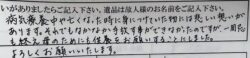 いがありましたらご記入下さい。遺品は故人様のお名前をご記入下さい。
病気療養中や亡くなった時に身につけていた物には悲しい想いが
あります。それでもなかなか手放す事ができなかったのですが、一周忌
も終え、母のためにも供養をお願いすることにしました。
よろしくお願いいたします。